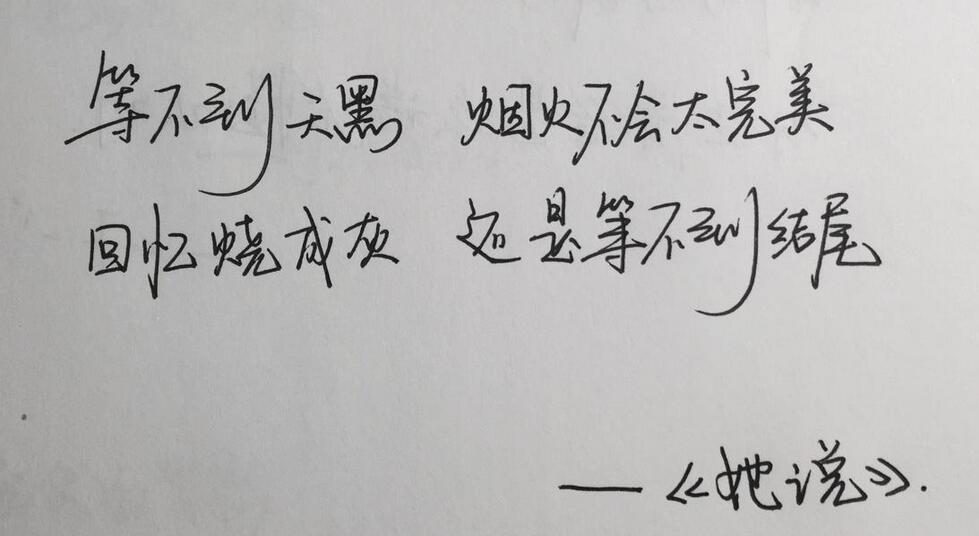 等不到天黑 烟火不会太完美
回忆烧成灰 还是等不到结尾
——《她说》.